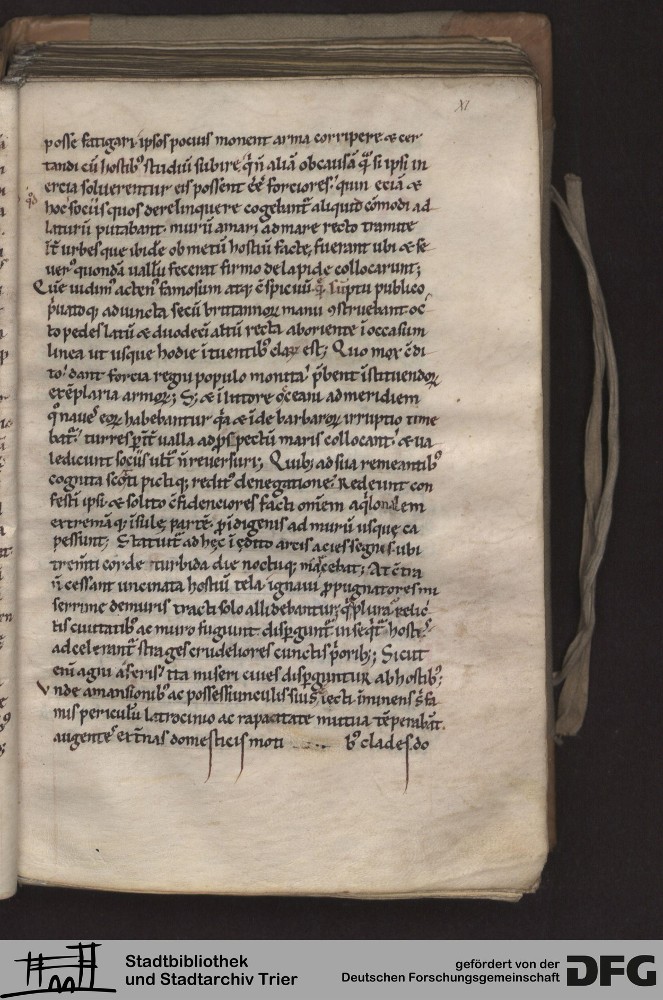 XI
posse fatigari. ipsos pocius monent arma corripere & cer
tandi cū hostibꝰ studiū subire. q̇ n̄ aliā ob causā q̄ si ipsi in
ercia soluerentur eis possent eē forciores. quin eciā &
hoc sociis quos derelinquere cogebant᷑ aliquid cōmodi ad
laturū putabant. murū a mari ad mare recto tramite
int᷑ urbes que ibidē ob metū hostiū facte fuerant ubi & se
uerꝰ quondā uallū fecerat firmo de lapide collocarunt;
Quē uidimꝰ actenꝰ famosum atq; c̄spicuū q̄ sūptu publico
p̄uatoq; adiuncta secū brittannoꝝ manu ꝯstruebant oc
to pedes latū & duodeci altū recta ab oriente ī occasum
linea ut usque hodie ītuentibꝰ claꝝ est; Quo mox c̄di
to. dant forcia segni populo monita. p̄bent īstituendoꝝ
exēplaria armoꝝ; S; & ī littore oceani ad meridiem
q̇ naueꝰ eoꝝ habebantur q̇a & īde barbaroꝝ irruptio time
bat᷑. turres ꝑ int᷑ualla ad ꝓspectum maris collocant. & ua
ledicunt sociis ut᷑ n̄ reuersuri; Quibꝰ ad sua remeantibꝰ
cognita scoti pictiq; reditꝰ denegatione. Redeunt con
festī ipsi. & solito c̄fidenciores facti omēm aq̇lonalem
extremāq; īsulę partē. ꝑ īdigenis ad murū usque ca
pessunt; Statuit᷑ ad hęc ī edito arcis acies segnis. ubi
trem̄ti corde turbida die noctuq; marcebat; At ec̄tra
n̄ cessant uncinata hostiū tela. ignaui ꝓpugnatores mi
serrime de muris tracti solo allidebantur. q̇d plura. relic
tis ciuitatibꝰ ac muro fugiunt disꝑgunt᷑. inseq̇t᷑ hostis.
adcelerant᷑ strages crudeliores cunctis p̄oribꝰ; Sicut
enī agni a feris. ita miseri ciues disꝑguntur ab hostibꝰ;
Vnde a mansionibꝰ ac possessiunculis suis eiecti īminens s; fa
mis periculū latrocinio ac rapacitate mutua tēperabāt.
augentes ext᷑nas domesticis moti bꝰ clades. do
Stadtbibliothek
und Stadtarchiv Trier
gefördert von der
Deutschen Forschungsgemeinschaft
DFG